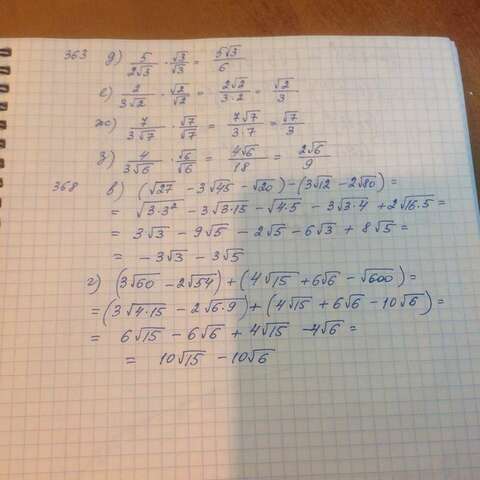 363 д) 5/(2√3) · √3/√3 = 5√3/6
е) 2/(3√2) · √2/√2 = 2√2/(3·2) = √2/3
ж) 7/(3√7) · √7/√7 = 7√7/(3·7) = √7/3
з) 4/(3√6) · √6/√6 = 4√6/18 = 2√6/9
368 в) (√27 - 3√45 - √20) - (3√12 - 2√80) =
= √3·3² - 3√3·15 - √4·5 - 3√3·4 + 2√16·5 =
= 3√3 - 9√5 - 2√5 - 6√3 + 8√5 =
= -3√3 - 3√5
г) (3√60 - 2√54) + (4√15 + 6√6 - √600) =
= (3√4·15 - 2√6·9) + (4√15 + 6√6 - 10√6) =
= 6√15 - 6√6 + 4√15 - 4√6 =
= 10√15 - 10√6